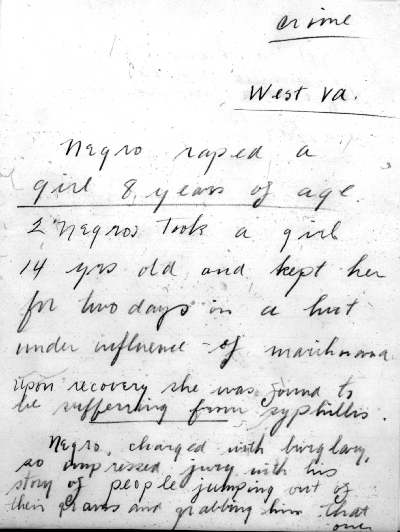 crime
West Va.
Negro raped a
girl 8 years of age.
2 Negros Took a girl
14 yrs old and kept her
for two days in a hut
under influence of marihuana
upon recovery she was found to
be sufferring from syphillis.
Negro, charged with burglary,
so impressed jury with his
story of people jumping out of
their graves and grabbing him that
one